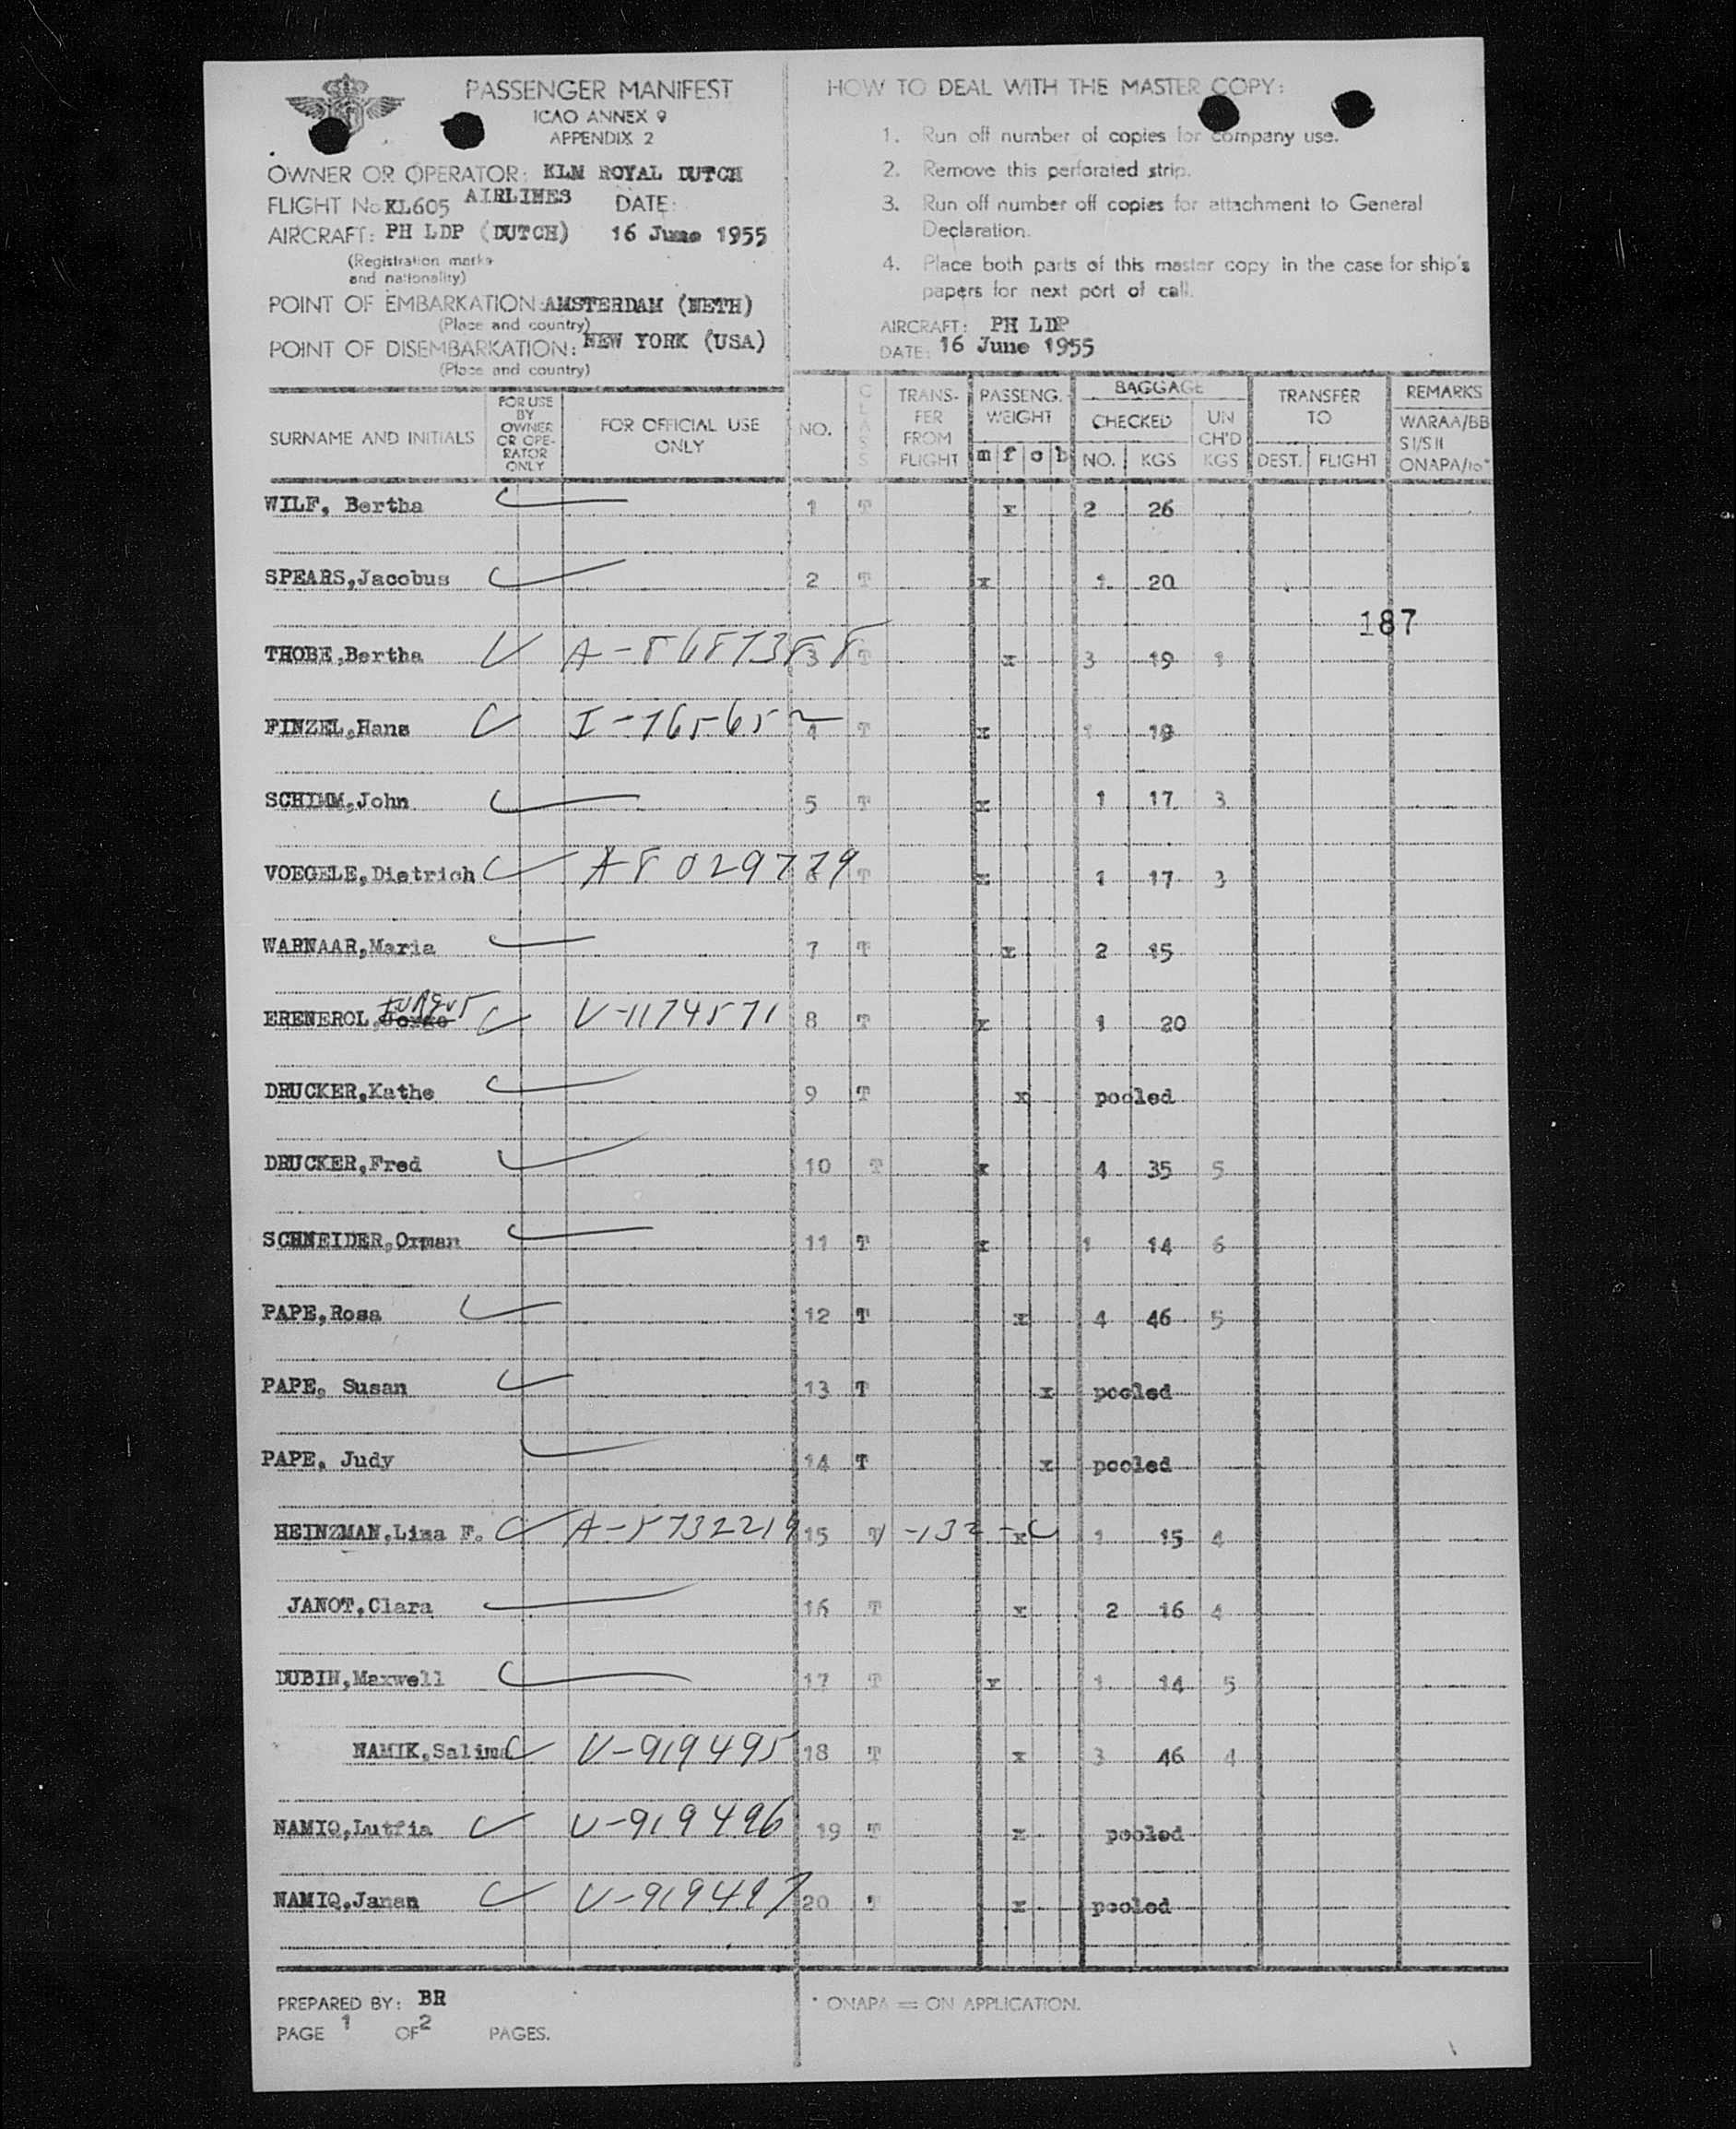 PASSENGER MANIFEST
ICAO ANNEX 9
APPENDIX 2
OWNER OR OPERATOR: KLM ROYAL DUTCH
AIRLINES
FLIGHT No KL605 DATE:
AIRCRAFT: PH LDP (DUTCH) 16 June 1955
(Registration marks
and nationality)
POINT OF EMBARKATION: AMSTERDAM (NETH)
(Place and country)
POINT OF DISEMBARKATION: NEW YORK (USA)
(Place and country)
HOW TO DEAL WITH THE MASTER COPY:
1. Run off number of copies for company use.
2. Remove this perforated strip.
3. Run off number off copies for attachment to General
Declaration.
4. Place both parts of this master copy in the case for ship's
papers for next port of call.
AIRCRAFT: PH LDP
DATE: 16 June 1955
SURNAME AND INITIALS
FOR USE
BY
OWNER
OR OPE-
RATOR
ONLY
FOR OFFICIAL USE
ONLY
NO.
CLASS
TRANS-
FER
FROM
FLIGHT
PASSENG.
WEIGHT
m f c b
BAGGAGE
CHECKED
NO. KGS
UN
CH'D
KGS
TRANSFER
TO
DEST. FLIGHT
REMARKS
WARAA/BB
SI/SII
ONAPA/10*
WILF, Bertha 1 T x 2 26
SPEARS,Jacobus 2 T x 1 20
187
THOBE,Bertha A-8687388 3 T x 3 19 1
FINZEL,Hans I-765652 4 T x 1 19
SCHIMM,John 5 T x 1 17 3
VOEGELE,Dietrich A8029779 6 T x 1 17 3
WARNAAR,Maria 7 T x 2 15
ERENEROL, V-1174571 8 T x 1 20
DRUCKER,Kathe 9 T x pooled
DRUCKER,Fred 10 T x 4 35 5
SCHNEIDER,Orman 11 T x 1 14 6
PAPE,Rosa 12 T x 4 46 5
PAPE, Susan 13 T x pooled
PAPE, Judy 14 T x pooled
HEINZMAN,Lina F. A-5732219 15 T -132-C x 1 15 4
JANOT,Clara 16 T x 2 16 4
DUBIN,Maxwell 17 T x 1 14 5
NAMIK,Salima V-919495 18 T x 3 46 4
NAMIQ,Lutfia V-919496 19 T x pooled
NAMIQ,Janan V-919497 20 T x pooled
PREPARED BY: BR
PAGE 1 OF 2 PAGES.
* ONAPA = ON APPLICATION.